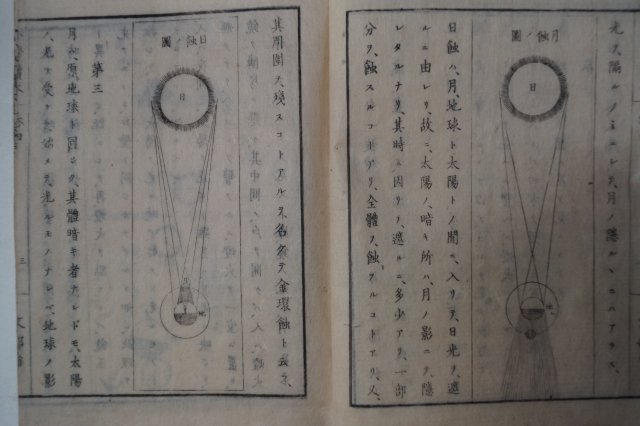 光ヲ隔ルノミニシテ月ノ隱ルヽニハアラス、
月蝕ノ圖
地
日蝕ハ、月、地球ト太陽トノ間ニ、入リテ、日光ヲ遮
ルニ由レリ、故ニ、太陽ノ、暗キ所ハ、月ノ影ニテ、隱
レタルナリ、其時ニ因リテ、遮ルニ、多少アリ、一部
分ヲ、蝕スルコトアリ、全體ヲ、蝕スルコトアリ、又、
其周圍ヲ、殘スコトアルヲ、名ケテ、金環蝕ト云フ、
日蝕ノ圖
日
月
地
第三
月ハ、原、地球ト同ジク、其體暗キ者ナレドモ、太陽
ノ光ヲ受ケ、始メテ、光ルモノナレバ、地球ノ影
三
文部省